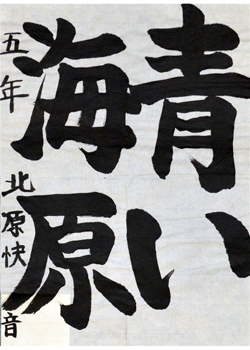 青い
海原
五年 北原快音